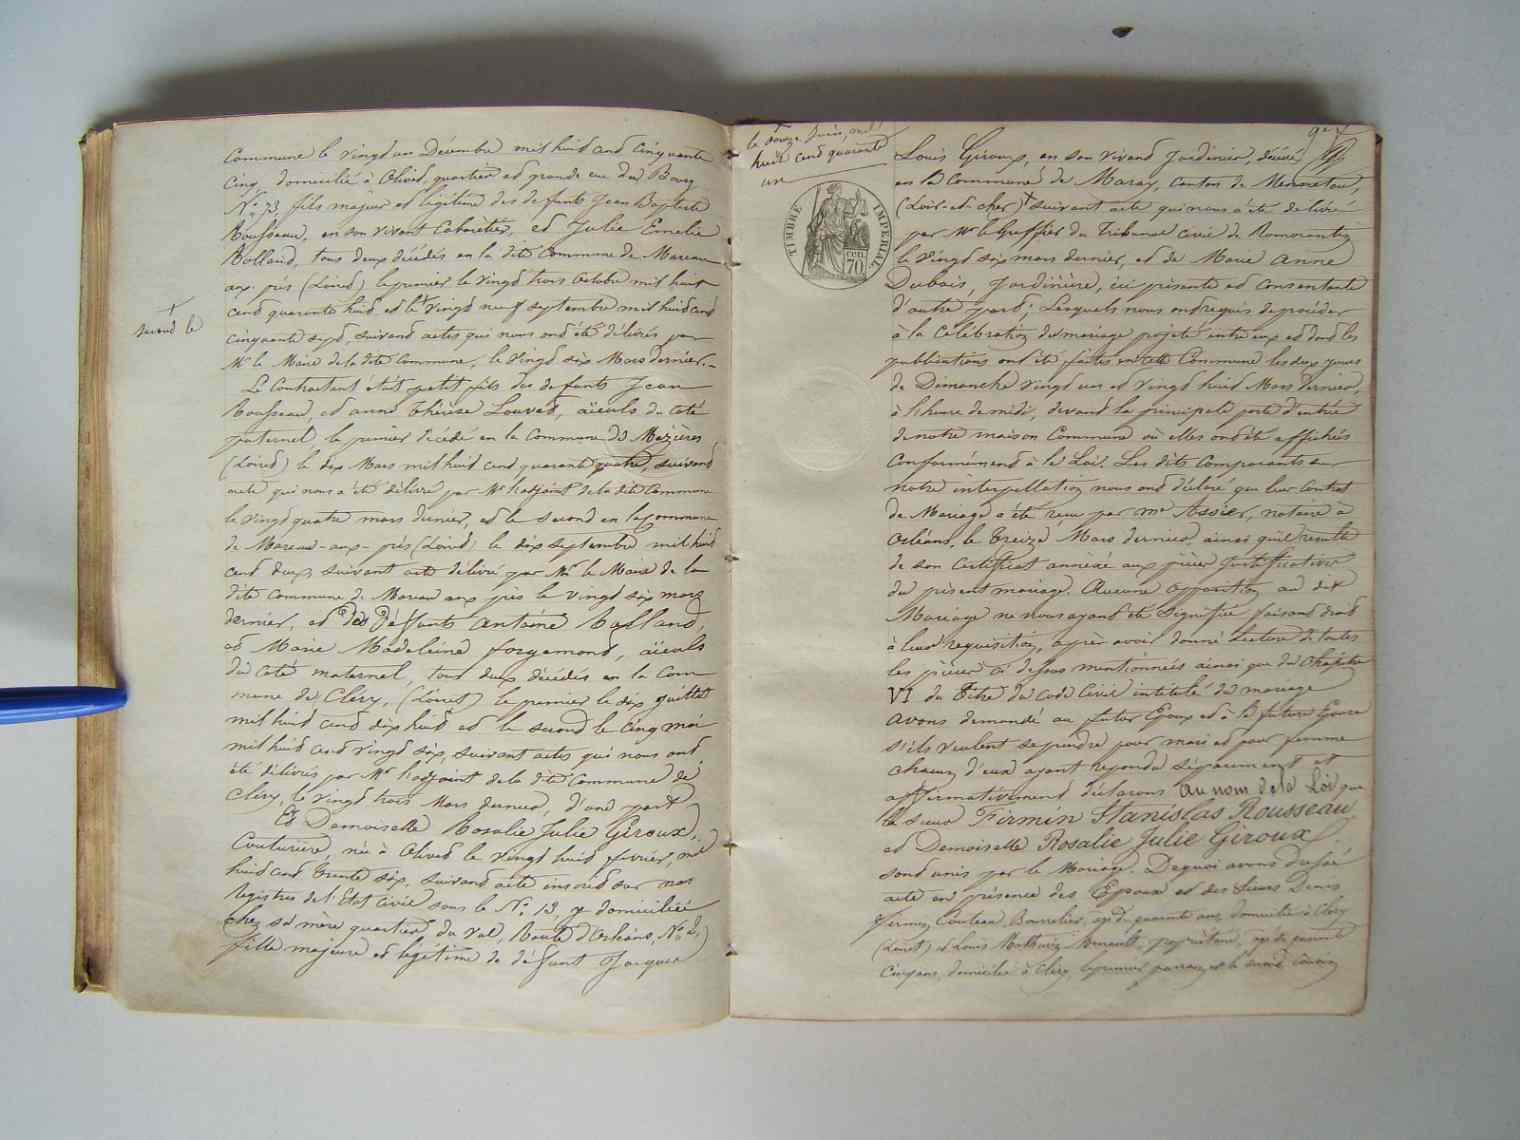 Commune le vingt un Décembre mil huit cent cinquante
Cinq, domicilié à Olivet, quartier et grande rue du Bourg
N° 73, fils majeur et légitime des defunts Jean Baptiste
Rousseau, en son vivant Cabaretier, et Julie Emelie
Rolland, tous deux décédés en la dite Commune de Mareau
aux près (Loiret) le premier le vingt trois Octobre mil huit
cent quarante huit et l+ vingt neuf septembre mil huit cent
+
second le
cinquante sept, suivant actes qui nous ont été délivrés par
Mr le Maire de la dite Commune, le vingt six Mars dernier.
Le Contractant était petit fils des defunts Jean
Rousseau, et anne Thérèse Louvet, aïeuls du coté
paternel, le premier décédé en la Commune de Mezières
(Loiret) le dix Mars mil huit cent quarante quatre, suivant
acte qui nous a été délivré par Mr l'adjoint de la dite Commune
le vingt quatre mars dernier, et le second en la Commune
de Mareau-aux-près (Loiret) le dix septembre mil huit
cent deux, suivant acte délivré par Mr le Maire de la
dite Commune de Mareau aux près le vingt six mars
dernier, et des Déffunts Antoine Rolland,
et Marie Madeleine forgemond, aïeuls
du coté maternel, tous deux décédés en la Com
mune de Cléry, (Loiret) le premier le dix juillet
mil huit cent dix huit et le second le cinq mai
mil huit cent vingt six, suivant actes qui nous ont
été délivrés par Mr l'adjoint de la dite Commune de
Cléry, le vingt trois Mars dernier, d'une part
Et Demoiselle Rosalie Julie Giroux,
Couturière, née à Olivet le vingt huit février, mil
huit cent trente six, suivant acte inscrit sur nos
registres de l'Etat Civil sous le N° 13, y domiciliée
chez sa mère quartier du Val, Route d'Orléans, N° 2,
fille majeure et légitime de défunt Jacques
+
le douze Juin, mil
huit cent quarante
un
TIMBRE IMPERIAL
70
Louis Giroux, en son vivant Jardinier, décédé
en la Commune de Maray, canton de Mennetou,
(Loir et cher)+ suivant acte qui nous a été délivré
par Mr le Greffier du Tribunal civil de Romorantin
le vingt six mars dernier, et de Marie Anne
Dubois, Jardinière, ici présente et consentante
d'autre part; Lesquels nous ont requis de procéder
à la Célébration du mariage projeté entre eux et dont les
publications ont été faites en cette Commune les deux jours
de Dimanche vingt un et vingt huit Mars dernier,
à l'heure de midi, devant la principale porte d'entrée
de notre maison Commune où elles ont été affichées
Conformément à la Loi. Les dits Comparants sur
notre interpellation nous ont déclaré que leur Contrat
de Mariage a été reçu par me Assier, notaire à
Orléans, le treize Mars dernier, ainsi qu'il résulte
de son Certificat annéxé aux pièces justificatives
du présent mariage. Aucune opposition au dit
Mariage ne nous ayant été signifiée faisant droit
à leur requisition, après avoir donné lecture de toutes
les pièces ci dessus mentionnées ainsi que du chapitre
VI du titre du Code Civil intitulé du mariage
Avons demandé au futur Epoux et à la future Epouse
s'ils veulent se prendre pour mari et pour femme
chacun d'eux ayant repondu séparément et
affirmativement déclarons Au nom de la Loi que
le sieur Firmin Stanislas Rousseau
et Demoiselle Rosalie Julie Giroux
sont unis par le Mariage. De quoi avons dressé
acte en présence des Epoux et des Sieurs Denis
Firmin Couteau, Bourrelier, agé de quarante ans, domicilié à Cléry
(Loiret) et Louis propriétaire, agé de
Cinq ans, domicilié à Cléry, le premier parrain et le second cousin